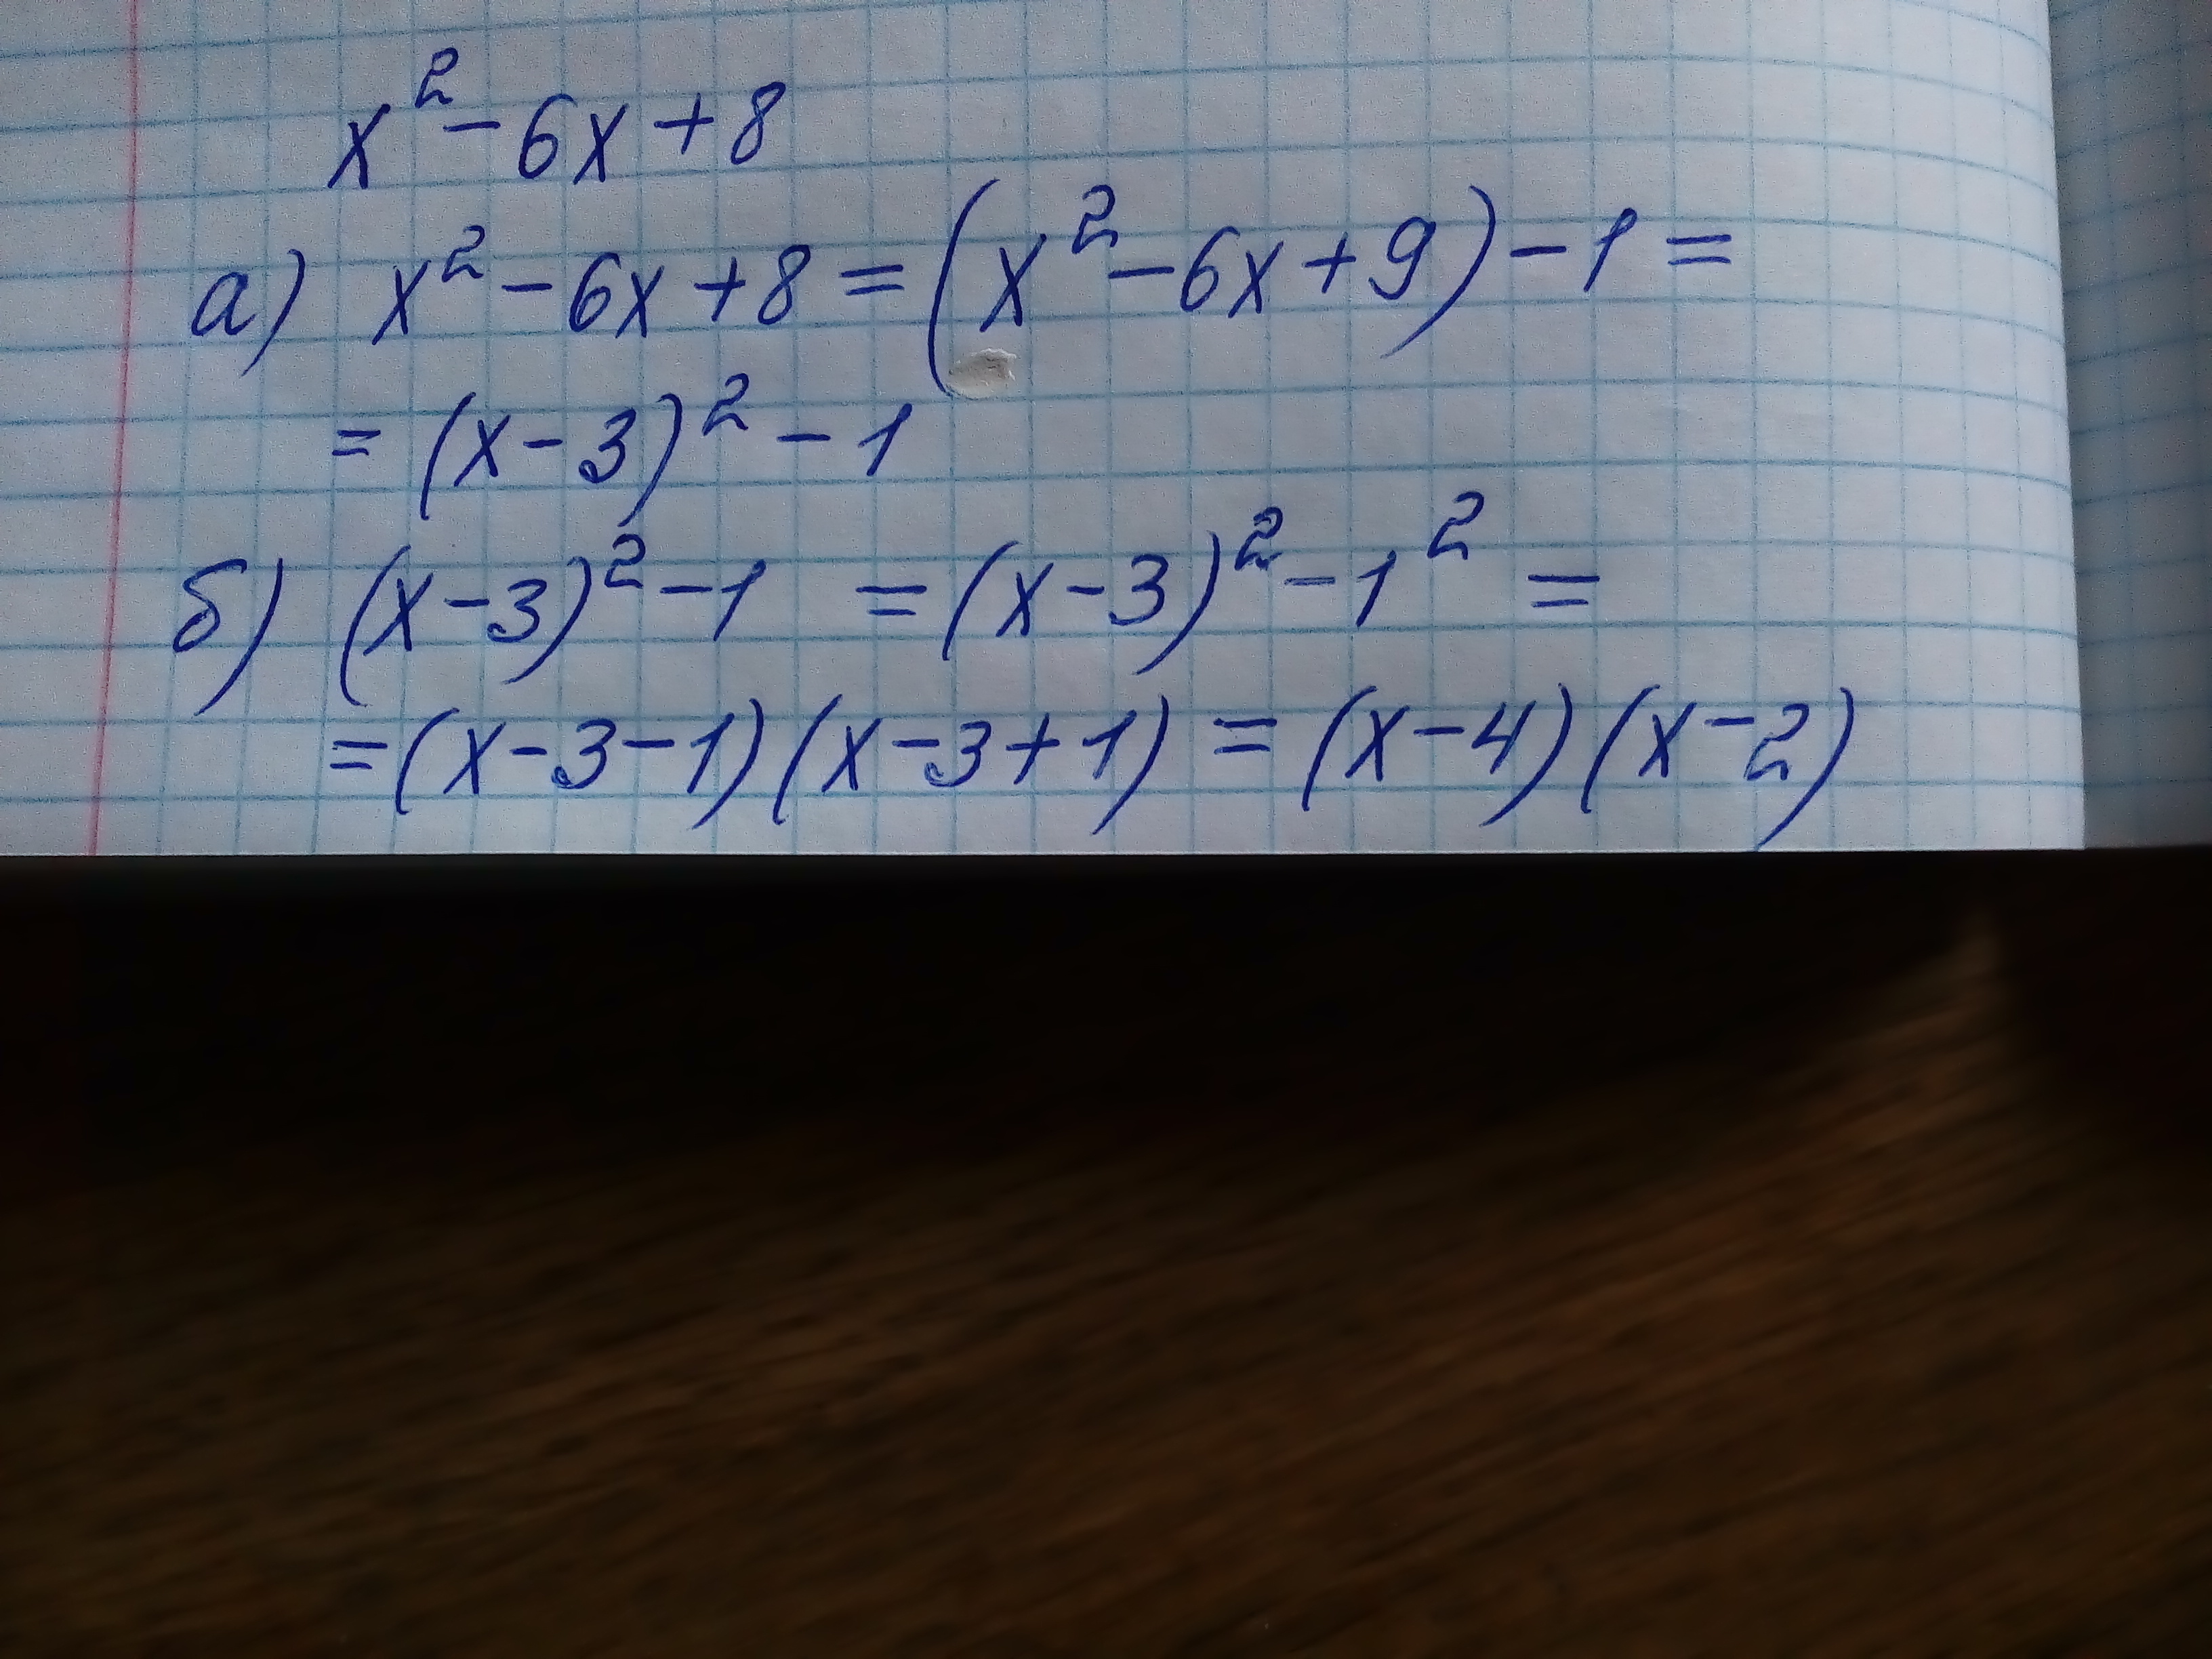 x² - 6x + 8
а) x² - 6x + 8 = (x² - 6x + 9) - 1 =
= (x - 3)² - 1
б) (x - 3)² - 1 = (x - 3)² - 1² =
= (x - 3 - 1)(x - 3 + 1) = (x - 4)(x - 2)